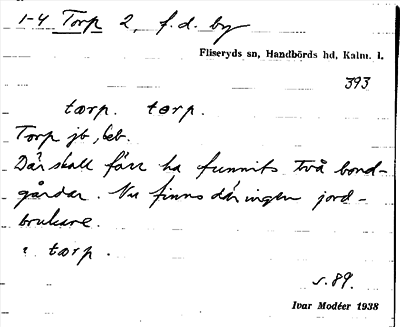 1-4 Torp 2, f.d. by
Fliseryds sn, Handbörds hd, Kalm. l.
393
tærp. tørp.
Torp jb, beb.
Där skall förr ha funnits två bond-
gårdar. Nu finns där ingen jord-
brukare.
i tærp.
s. 89.
Ivar Modéer 1938